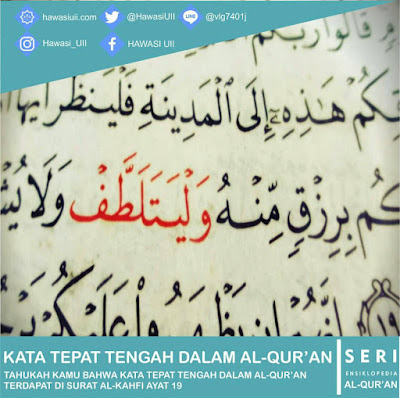 hawasiuii.com @HawasiUII @vlg7401j
Hawasi_UII HAWASI UII
قَالُوا۟ رَبُّكُمْ
قِكُمْ هَٰذِهِۦٓ إِلَى ٱلْمَدِينَةِ فَلْيَنظُرْ أَيُّهَا
كُم بِرِزْقٍ مِّنْهُ وَلْيَتَلَطَّفْ وَلَا يُشْ
١٩ إِنَّهُمْ إِن يَظْهَرُوا۟ عَلَيْكُمْ يَرْ
KATA TEPAT TENGAH DALAM AL-QUR'AN
TAHUKAH KAMU BAHWA KATA TEPAT TENGAH DALAM AL-QUR'AN
TERDAPAT DI SURAT AL-KAHFI AYAT 19
SERI
ENSIKLOPEDIA
AL-QUR'AN